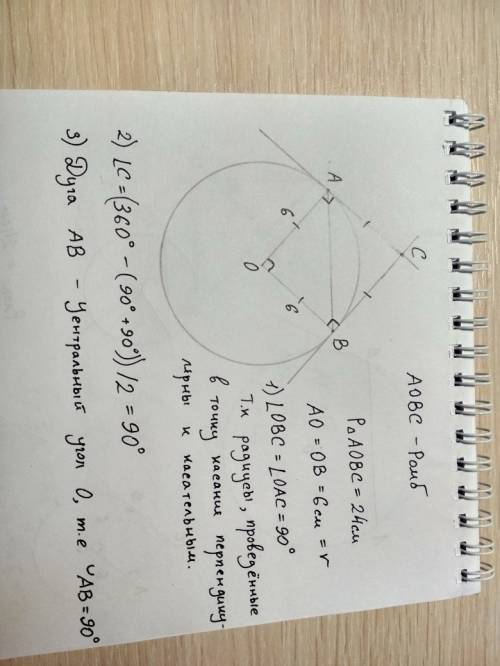 AOBC - Ромб
P△AOBC = 24см
AO = OB = 6см = r
1) ∠OBC = ∠OAC = 90°
Т.к радиусы, проведённые
в точку касания перпендику-
лярны к касательным.
2) ∠C = (360° - (90° + 90°))/2 = 90°
3) Дуга AB - Центральный угол O, т.е ◡AB = 90°
A
C
B
O
6
6